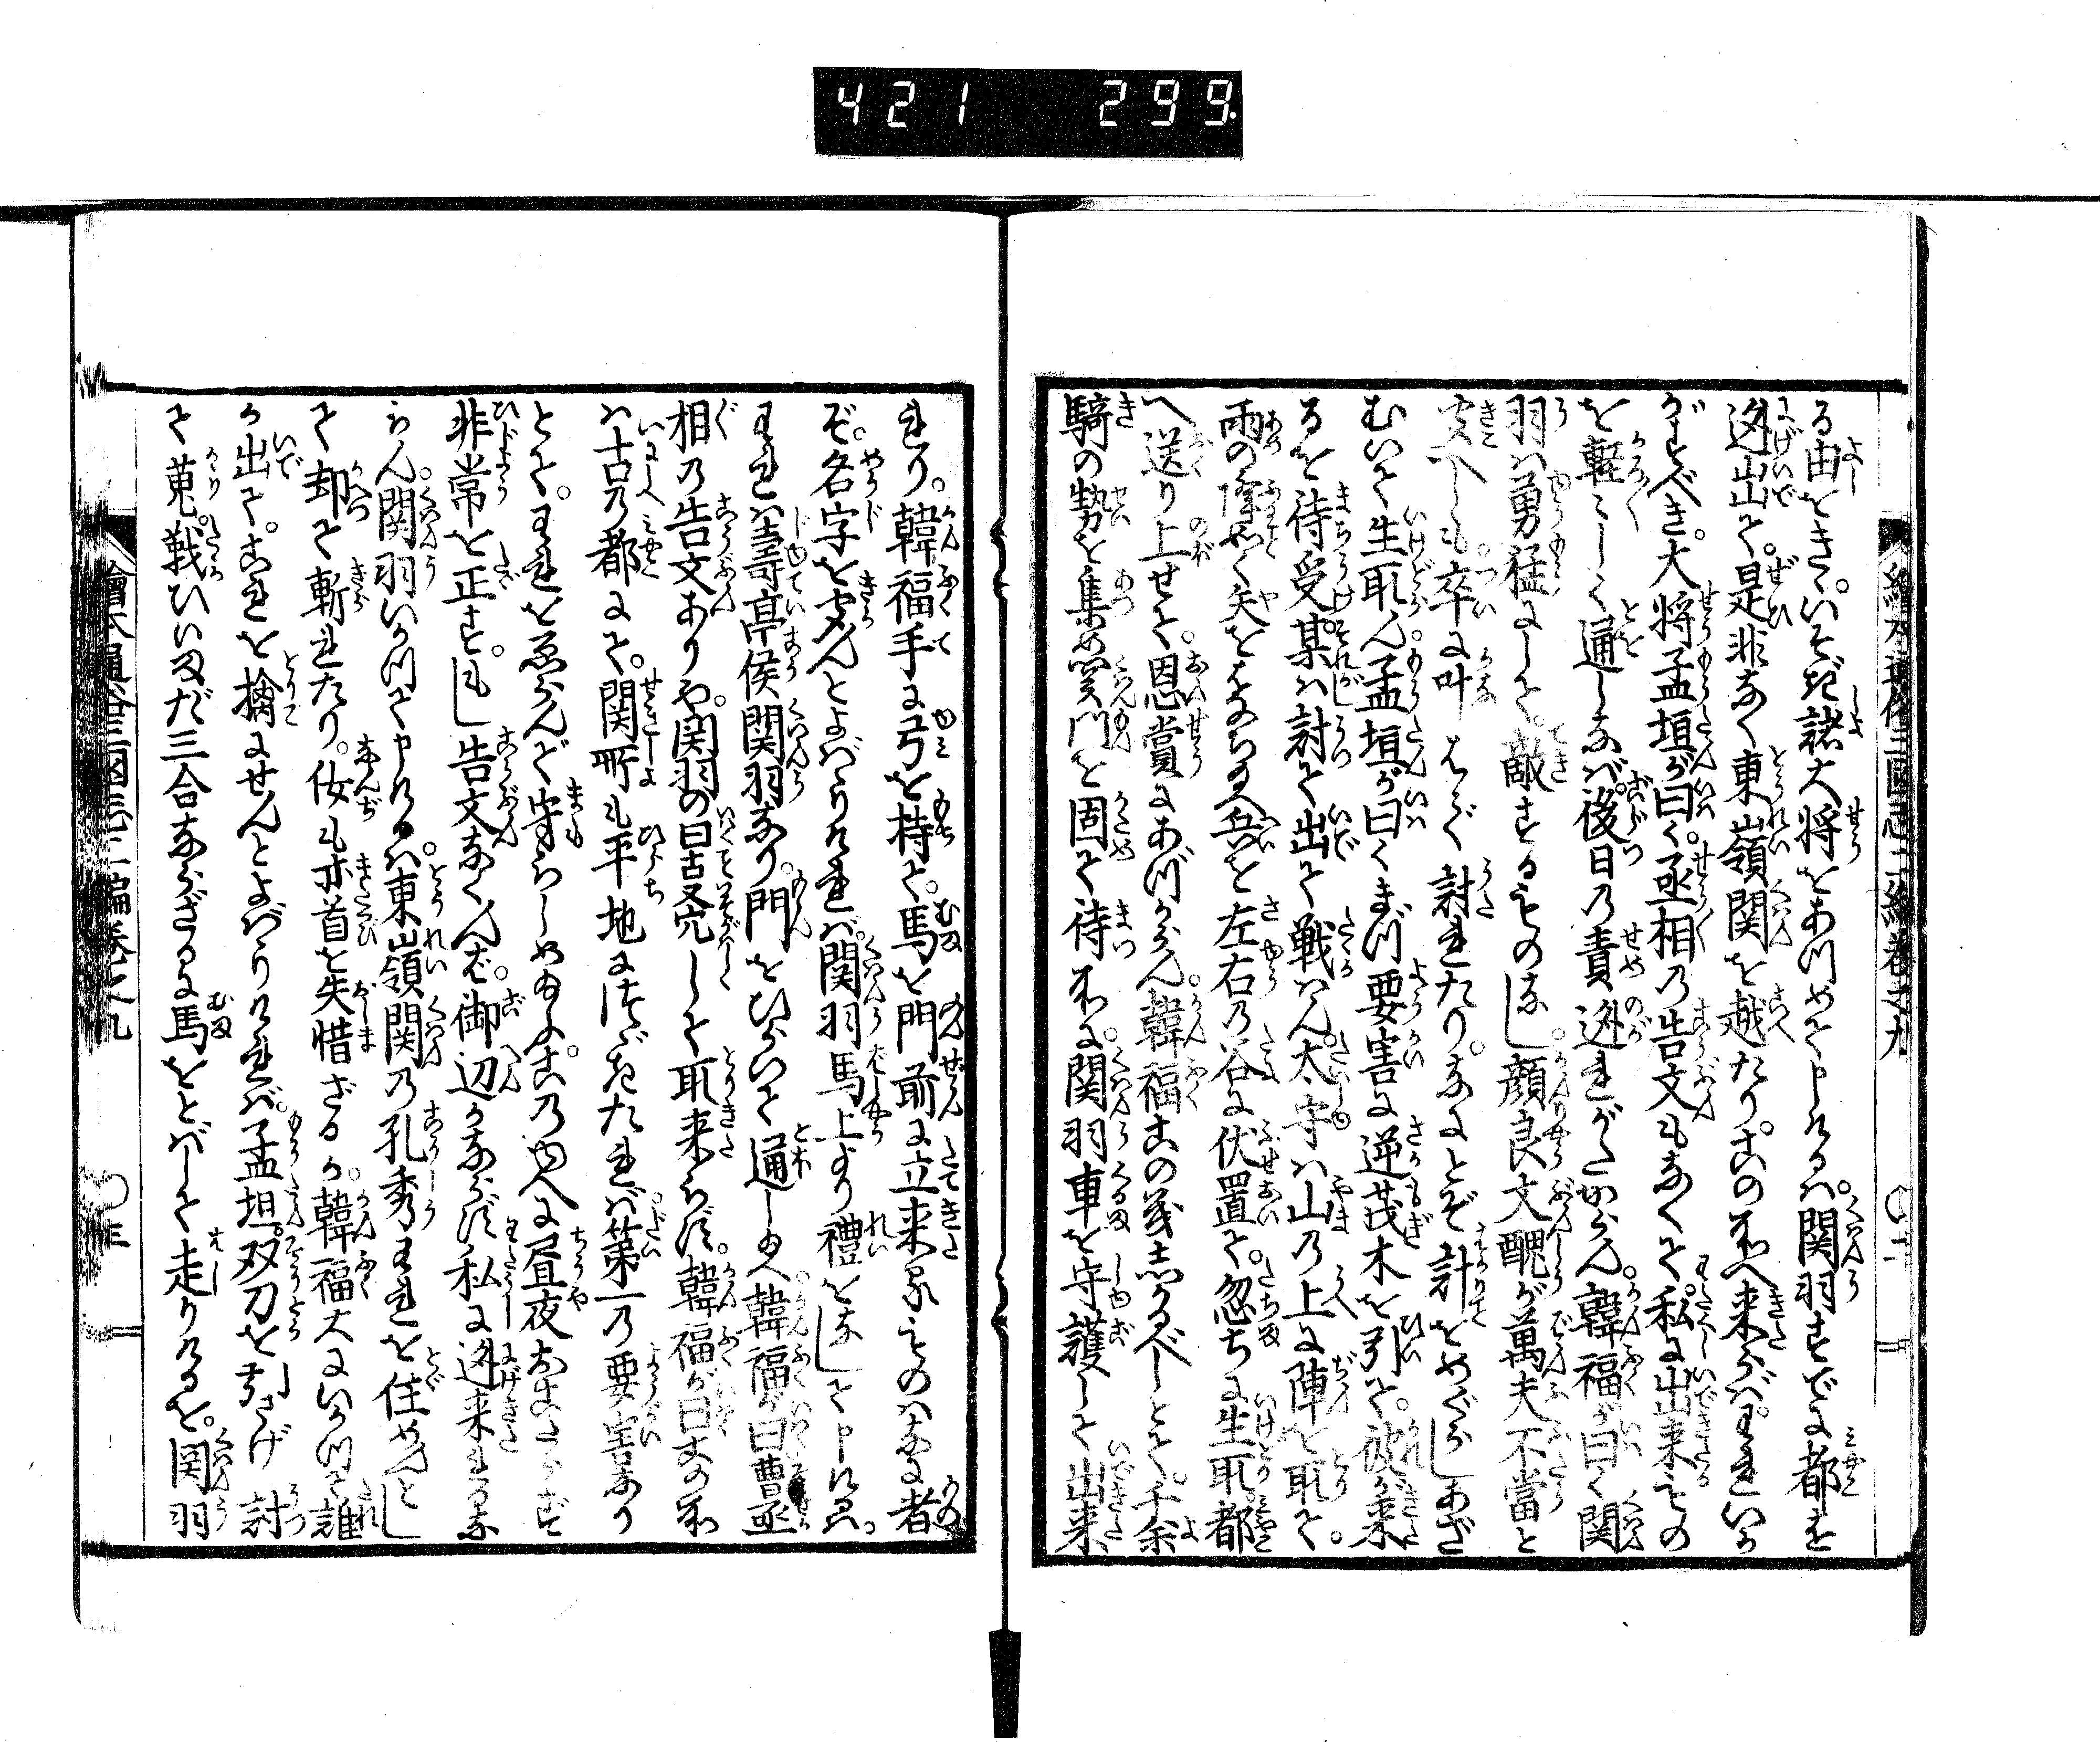 421 299.
繪本通俗三國志二編卷之九 〇二
る由をきゝ。いそぎ諸大将をあつめて申けるハ。関羽すでに都を
迯出て。是非なく東嶺関を越たり。この所へ来らバわれいか
がすべき。大将孟垣が曰く。丞相の告文もなくて。私に出来るもの
を軽々しく通しなバ。後日の責迯れがたからん。韓福が曰く関
羽ハ勇猛にして。敵するものなし。顔良文醜が萬夫不當と
聞へしも卒に叶はず討れたり。なにとぞ計をめぐらしあざ
むいて生取ん孟垣が曰くまづ要害に逆茂木を引て。彼が来
るを待受。某ハ討て出て戦ハん。太守ハ山の上に陣を取て。
雨の降如く矢をはなち又兵を左右の谷に伏置て。忽ちに生取。都
へ送り上せて。恩賞にあづからん。韓福この義志かるべしとて。千余
騎の勢を集め関門を固て待所に関羽車を守護して出来
れり。韓福手に弓を持て。馬を門前に立来るものハなに者
ぞ。名字を聞んとよバりけれバ。関羽馬上より禮をなして申けるハ。
われハ壽亭侯関羽なり。門をひらいて通し給へ。韓福が曰曹丞
相の告文ありや。関羽の曰古怱しくて取来らず。韓福が曰この所
ハ古の都にて。関所も平地に続きたれバ第一の要害なり
とて。われを忍んで守らしめ給ふ。このゆへに昼夜おこたらず
非常を正す。もし告文なくんバ。御辺かならず私に迯来れるな
らん。関羽いかつて申けるハ。東嶺関の孔秀われを住めんとし
て却て斬れたり。汝も亦首を失惜ざるか。韓福大にいかつて誰
か出て。これを擒にせんとよバりけれバ。孟垣。双刀を引さげ討
て蒐。戦ひいまだ三合ならざるに馬をとバして走りけるを。関羽
繪本通俗三國志二編卷之九 〇三